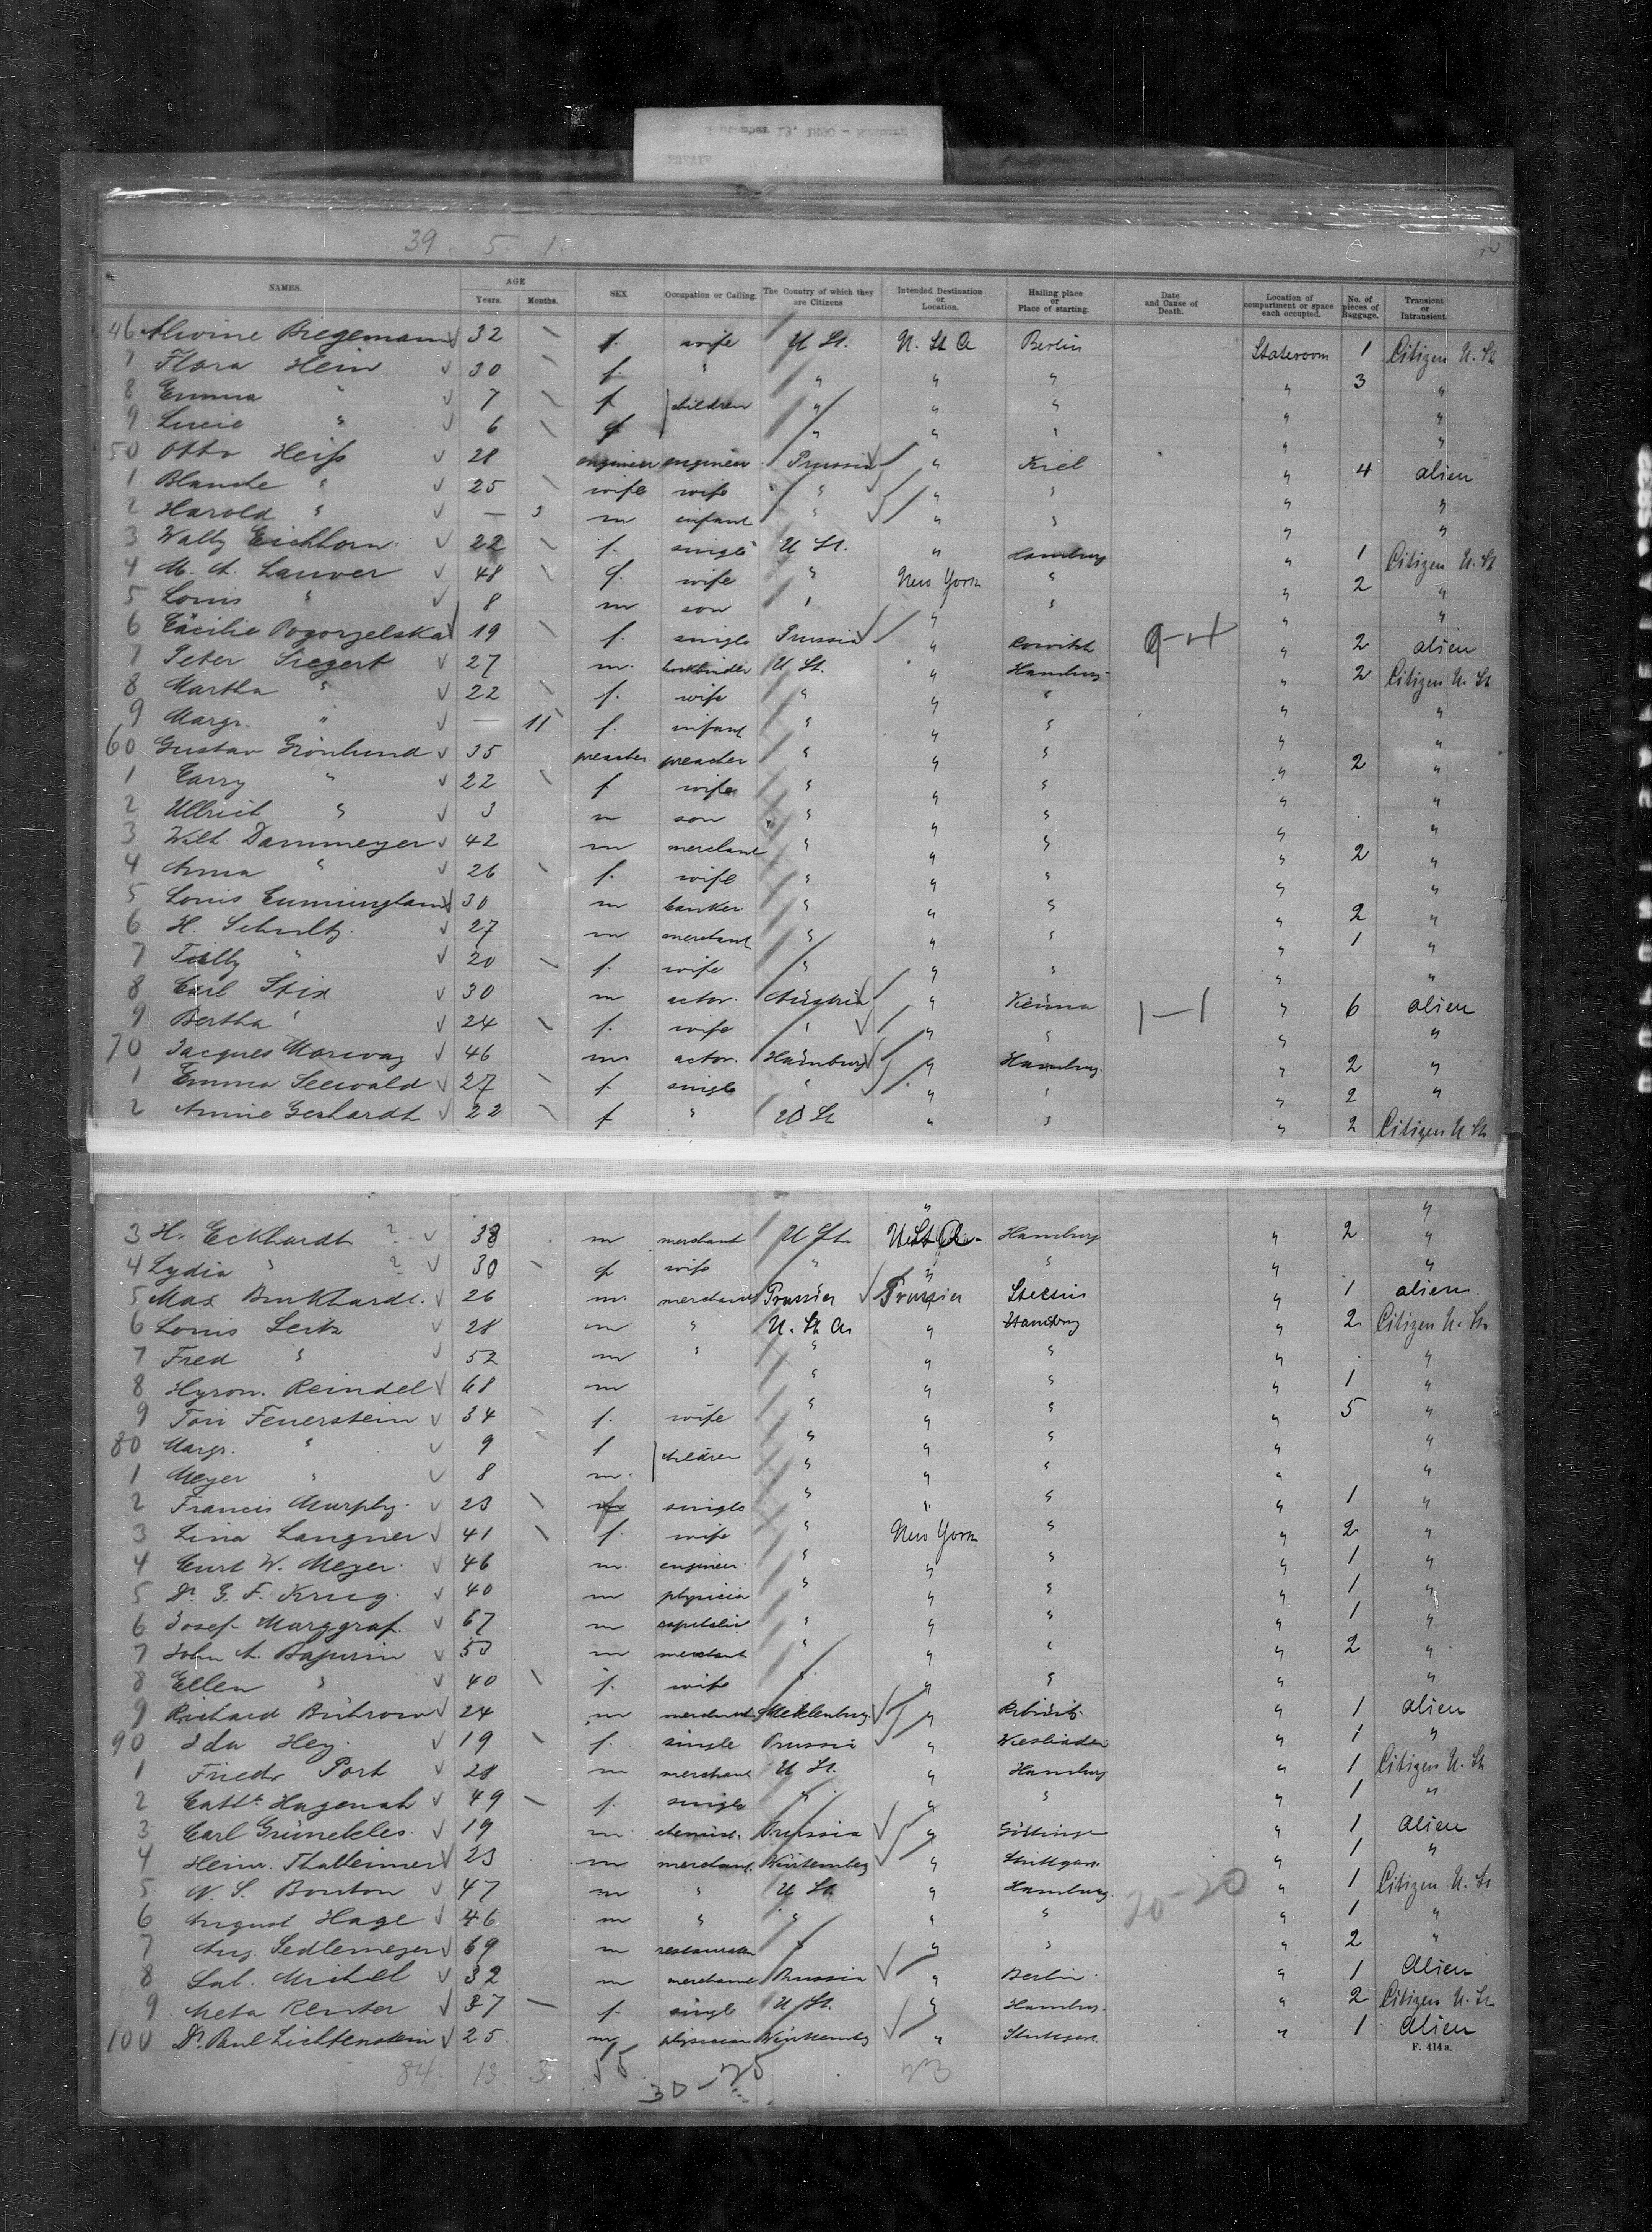 39. 5. 1. C
NAMES. AGE Years. Months. SEX Occupation or Calling. The Country of which they are Citizens Intended Destination or Location. Hailing place or Place of starting. Date and Cause of Death. Location of compartment or space each occupied. No. of pieces of Baggage. Transient or Intransient
46 Alwine Bregemann 32 f. wife U St. U. St A Berlin Stateroom 1 Citizen U. St
7 Flora Hein 30 f. " " " " " 3 "
8 Emma " 7 f children " " " " "
9 Lucie " 6 f " " " " "
50 Otto Heiß 28 engineer engineer Prussia " Kiel " 4 alien
1 Blanche " 25 wife wife " " " " "
2 Harold " — 3 m infant " " " " "
3 Wally Eichhorn 22 f. single U St. " Hamburg " 1 Citizen U. St
4 M. A. Lauver 48 f. wife " New York " " 2 "
5 Louis " 8 m son " " " " "
6 Cäcilie Pogorzelska 19 f. single Prussia " " 2 alien
7 Peter Siegert 27 m. bookbinder U St. " Hamburg " 2 Citizen U. St
8 Martha " 22 f. wife " " " " "
9 Margr. " — 11 f. infant " " " " "
60 Gustav Grönlund 35 preacher preacher " " " " 2 "
1 Carry " 22 f wife " " " " "
2 Ullrich " 3 m son " " " " "
3 Wilh. Dammeyer 42 m merchant " " " " 2 "
4 Anna " 26 f. wife " " " " "
5 Louis Cunningham 30 m banker " " " " 2 "
6 H. Schultz. 27 m merchant " " " " 1 "
7 Tilly " 20 f. wife " " " " "
8 Carl Stix 30 m actor. Austria " Vienna 1—1 " 6 alien
9 Bertha " 24 f. wife " " " " "
70 Jacques Morway 46 m. actor. Hamburg " Hamburg. " 2 "
1 Emma Seewald 27 f. single " " " " 2 "
2 Annie Gerhardt 22 f " U St " " " 2 Citizen U St
" "
3 H. Eckhardt ? 38 m merchant U St. U St A. Hamburg " 2 "
4 Lydia " ? 30 f wife " " " " "
5 Max Burkhardt. 26 m. merchant Prussia Prussia Stettin " 1 alien.
6 Louis Seitz 28 m " U. St A. " Hamburg " 2 Citizen U. St.
7 Fred " 52 m " " " " " "
8 Hyron. Reindel 68 m " " " " 1 "
9 Toni Feuerstein 34 f. wife " " " " 5 "
80 Margr. " 9 f children " " " " "
1 Meyer " 8 m. " " " " "
2 Francis Murphy. 23 f single " " " " 1 "
3 Lina Langner 41 f. wife " New York " " 2 "
4 Curt W. Meyer. 46 m. engineer. " " " " 1 "
5 Dr. G. F. Krug. 40 m physician " " " " 1 "
6 Josef Marggraf. 67 m capitalist " " " " 1 "
7 John A. 53 m merchant " " " " 2 "
8 Ellen " 40 f. wife " " " " "
9 Richard Bührow 24 m merchant Mecklenburg " " 1 alien
90 Ida Hey. 19 f. single Prussia " Wiesbaden " 1 "
1 Friedr Port 28 m merchant U St. " Hamburg " 1 Citizen U. St.
2 Cath. Hagenah 49 f. single " " " " 1 "
3 Carl Grünekles. 19 m chemist. Prussia " Göttingen " 1 alien
4 Heinr. Thalheimer 23 m merchant. Würtemberg " Stuttgart. " 1 "
5 N. S. Bouton 47 m " U St. " Hamburg. 20-20 " 1 Citizen U. St
6 August Hage 46 m " " " " " 1 "
7 Aug. Sedlemeyer 69 m " " " " 2 "
8 Sal. Michel 32 m merchant Prussia " Berlin. " 1 Alien
9 Meta Renter 37 f. single U St. " Hamburg. " 2 Citizen U. St.
100 Dr. Paul Lichtenstein 25. m physician Würtemberg " Stuttgart. " 1 Alien
F. 414a.
84. 13 3.